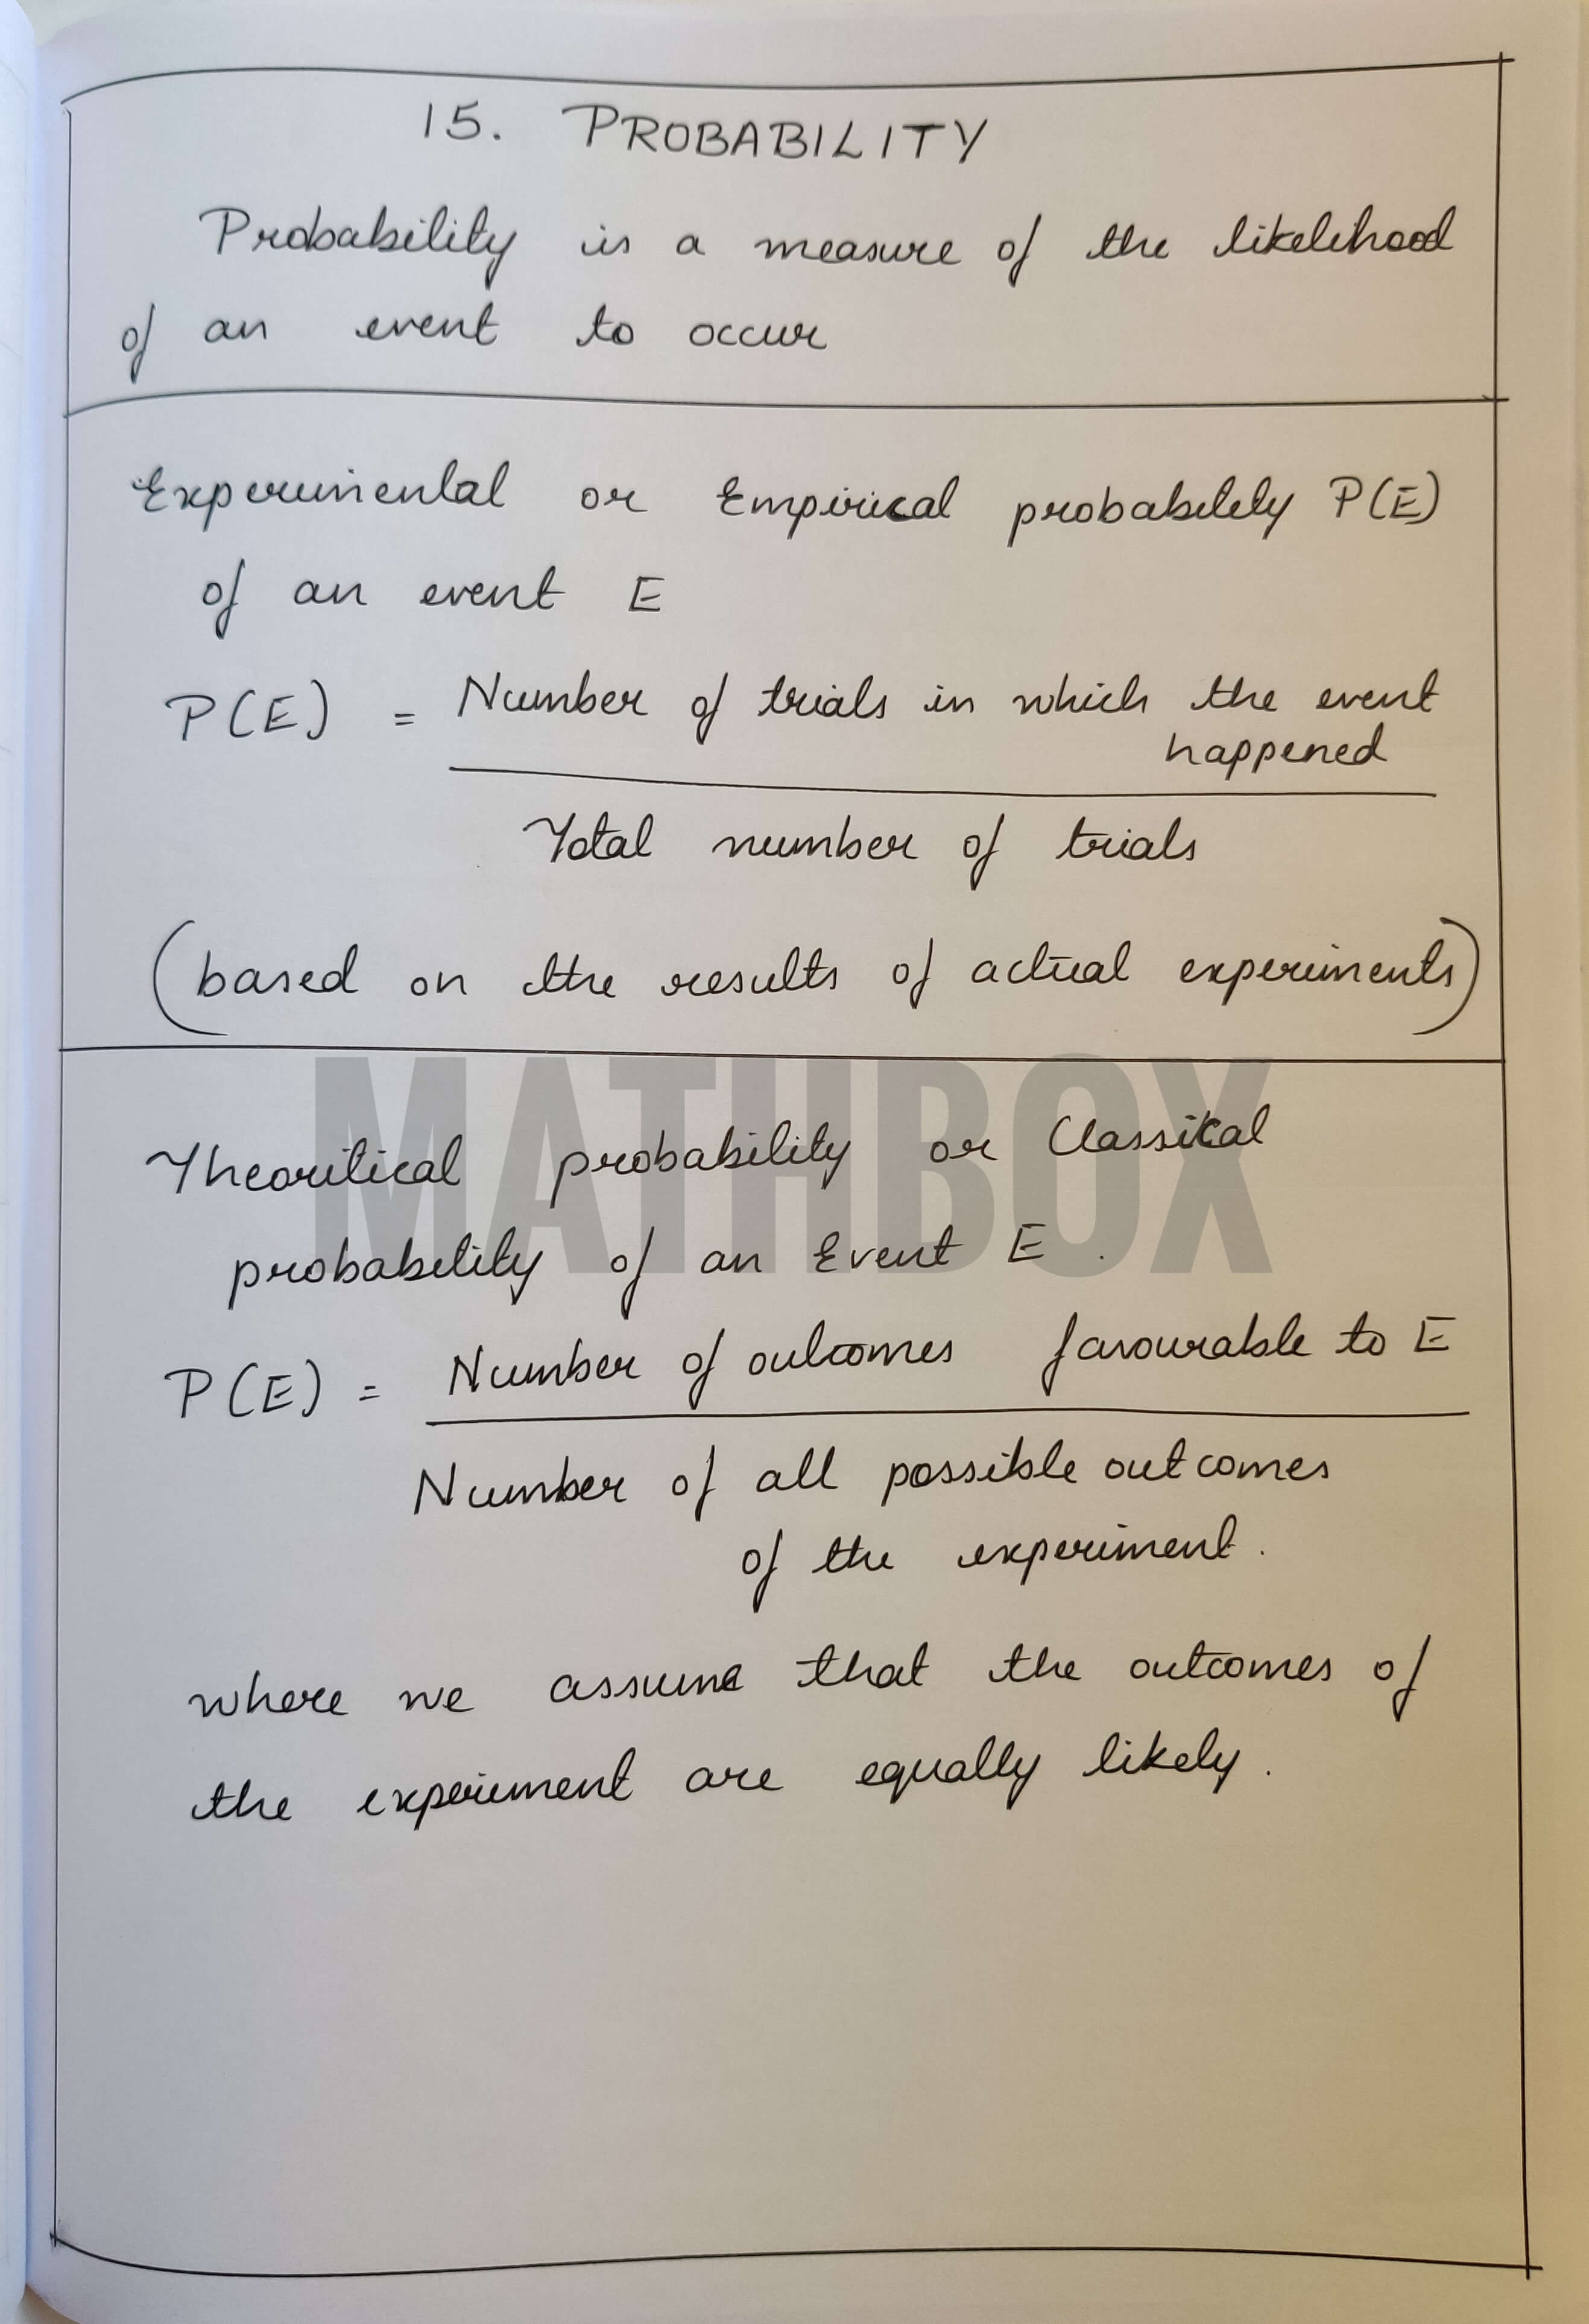 15. PROBABILITY
Probability is a measure of the likelihood
of an event to occur
Experimental or Empirical probability P(E)
of an event E
P(E) = Number of trials in which the event
happened
Total number of trials
(based on the results of actual experiments)
MATHBOX
Theoritical probability or Classical
probability of an Event E.
P(E) = Number of outcomes favourable to E
Number of all possible outcomes
of the experiment.
where we assume that the outcomes of
the experiment are equally likely.